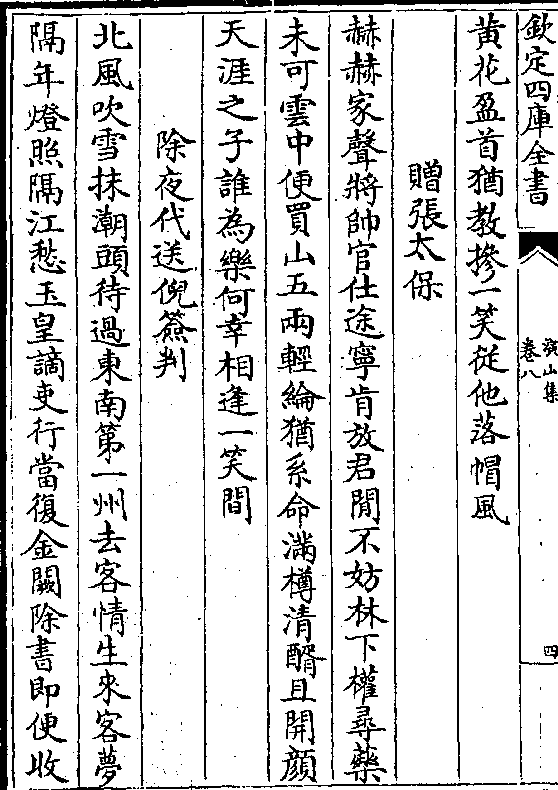 欽定四庫全書
卷八
四
黄花盈首猶教摻一笑従他落帽風
贈張太保
赫赫家聲將帥官仕途寧肯放君閒不妨林下權尋藥
未可雲中便買山五兩輕綸猶系命滿樽清醑且開顔
天涯之子誰為樂何幸相逢一笑間
除夜代送倪簽判
北風吹雪抹潮頭待過東南第一州去客情生來客夢
隔年燈照隔江愁玉皇謫吏行當復金闕除書即便收